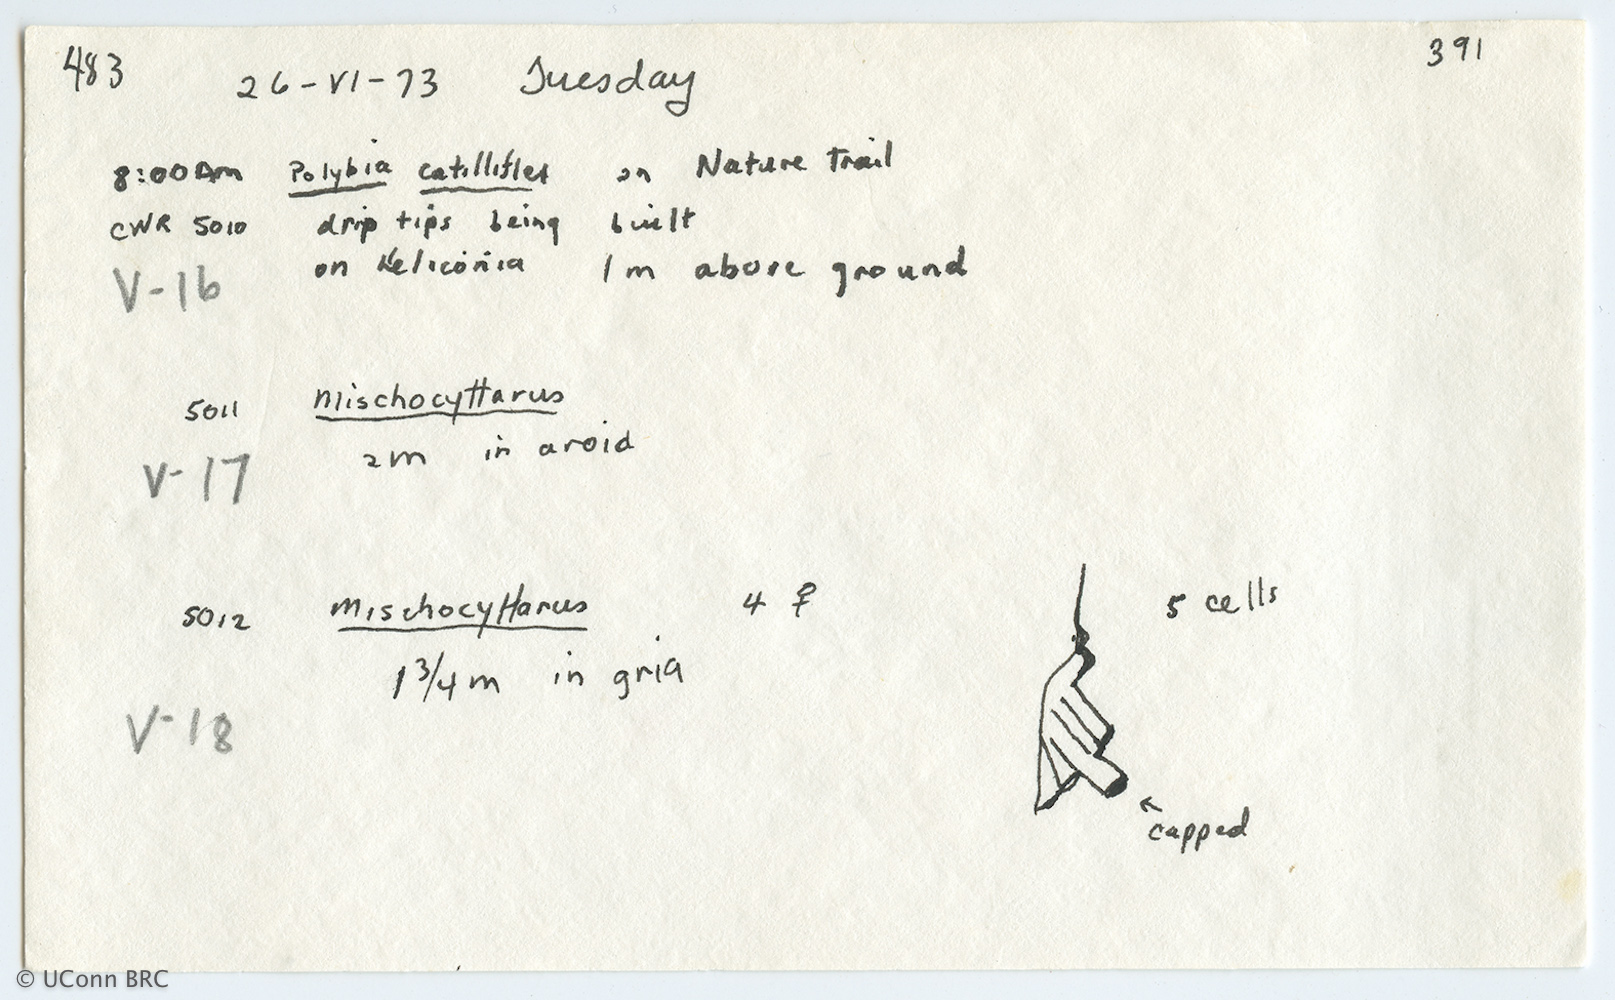 483 391
26-VI-73 Tuesday
8:00 AM Polybia catillifex on Nature Trail
CWR 5010 drip tips being built
on Heliconia 1 m above ground
V-16
5011 Mischocyttarus
2m in aroid
V-17
5012 Mischocyttarus 4 ♀ 5 cells
1 3/4 m in gria
V-18
← capped
© UConn BRC